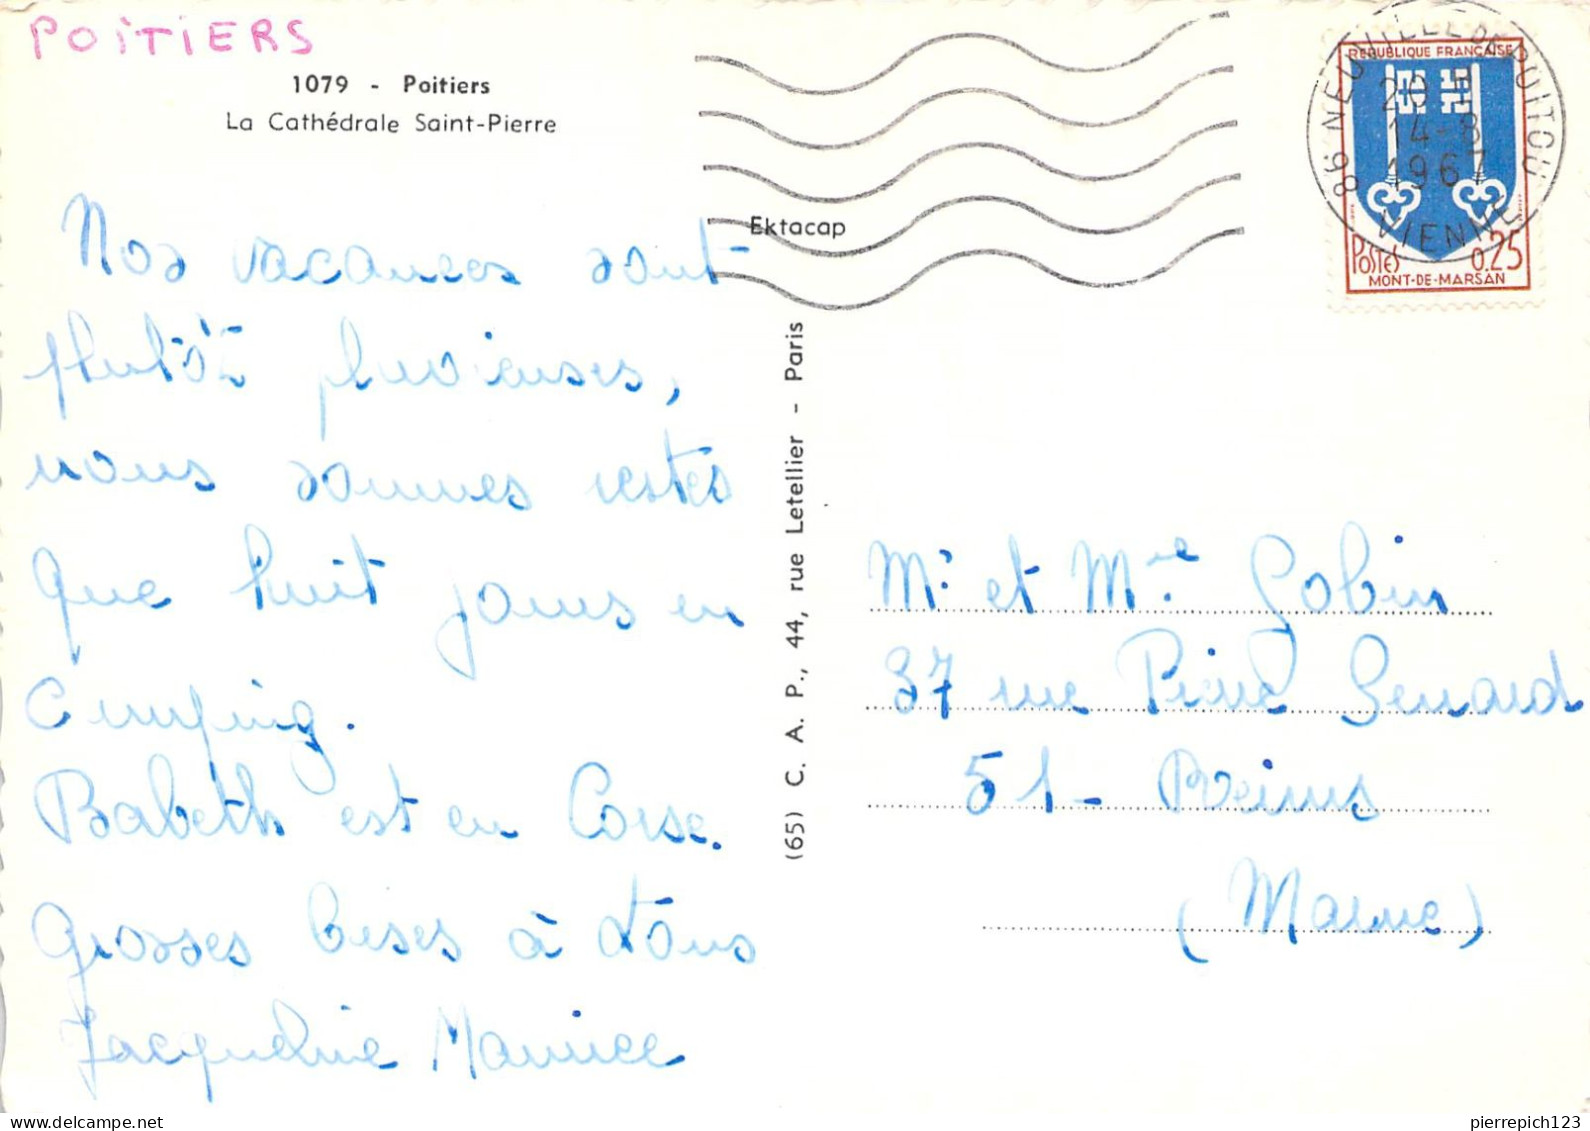 POITIERS
1079 - Poitiers
La Cathédrale Saint-Pierre
Nos vacances sont
plutôt pluvieuses,
nous sommes restés
que huit jours en
Camping.
Babeth est en Corse.
Grosses bises à tous
Jacqueline Maurice
Ektacap
(65) C. A. P., 44, rue Letellier - Paris
REPUBLIQUE FRANÇAISE
POSTES 0.25
MONT-DE-MARSAN
86 NEUVILLE DE POITOU
20 H
14-8
1967
VIENNE
Mr et Mme Gobin
37 rue Pierre Senard
51 - Reims
(Marne)
pierrepich123